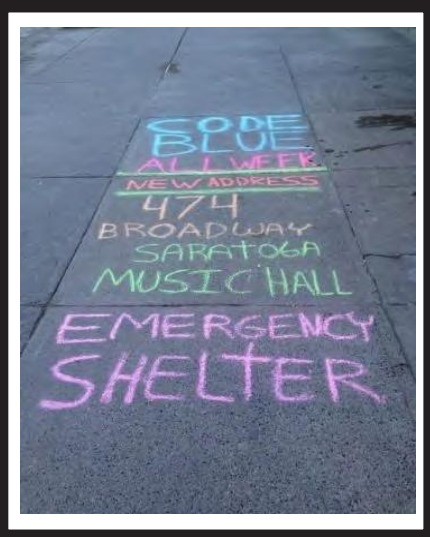 CODE
BLUE
ALL WEEK
NEW ADDRESS
474
BROADWAY
SARATOGA
MUSIC HALL
EMERGENCY
SHELTER